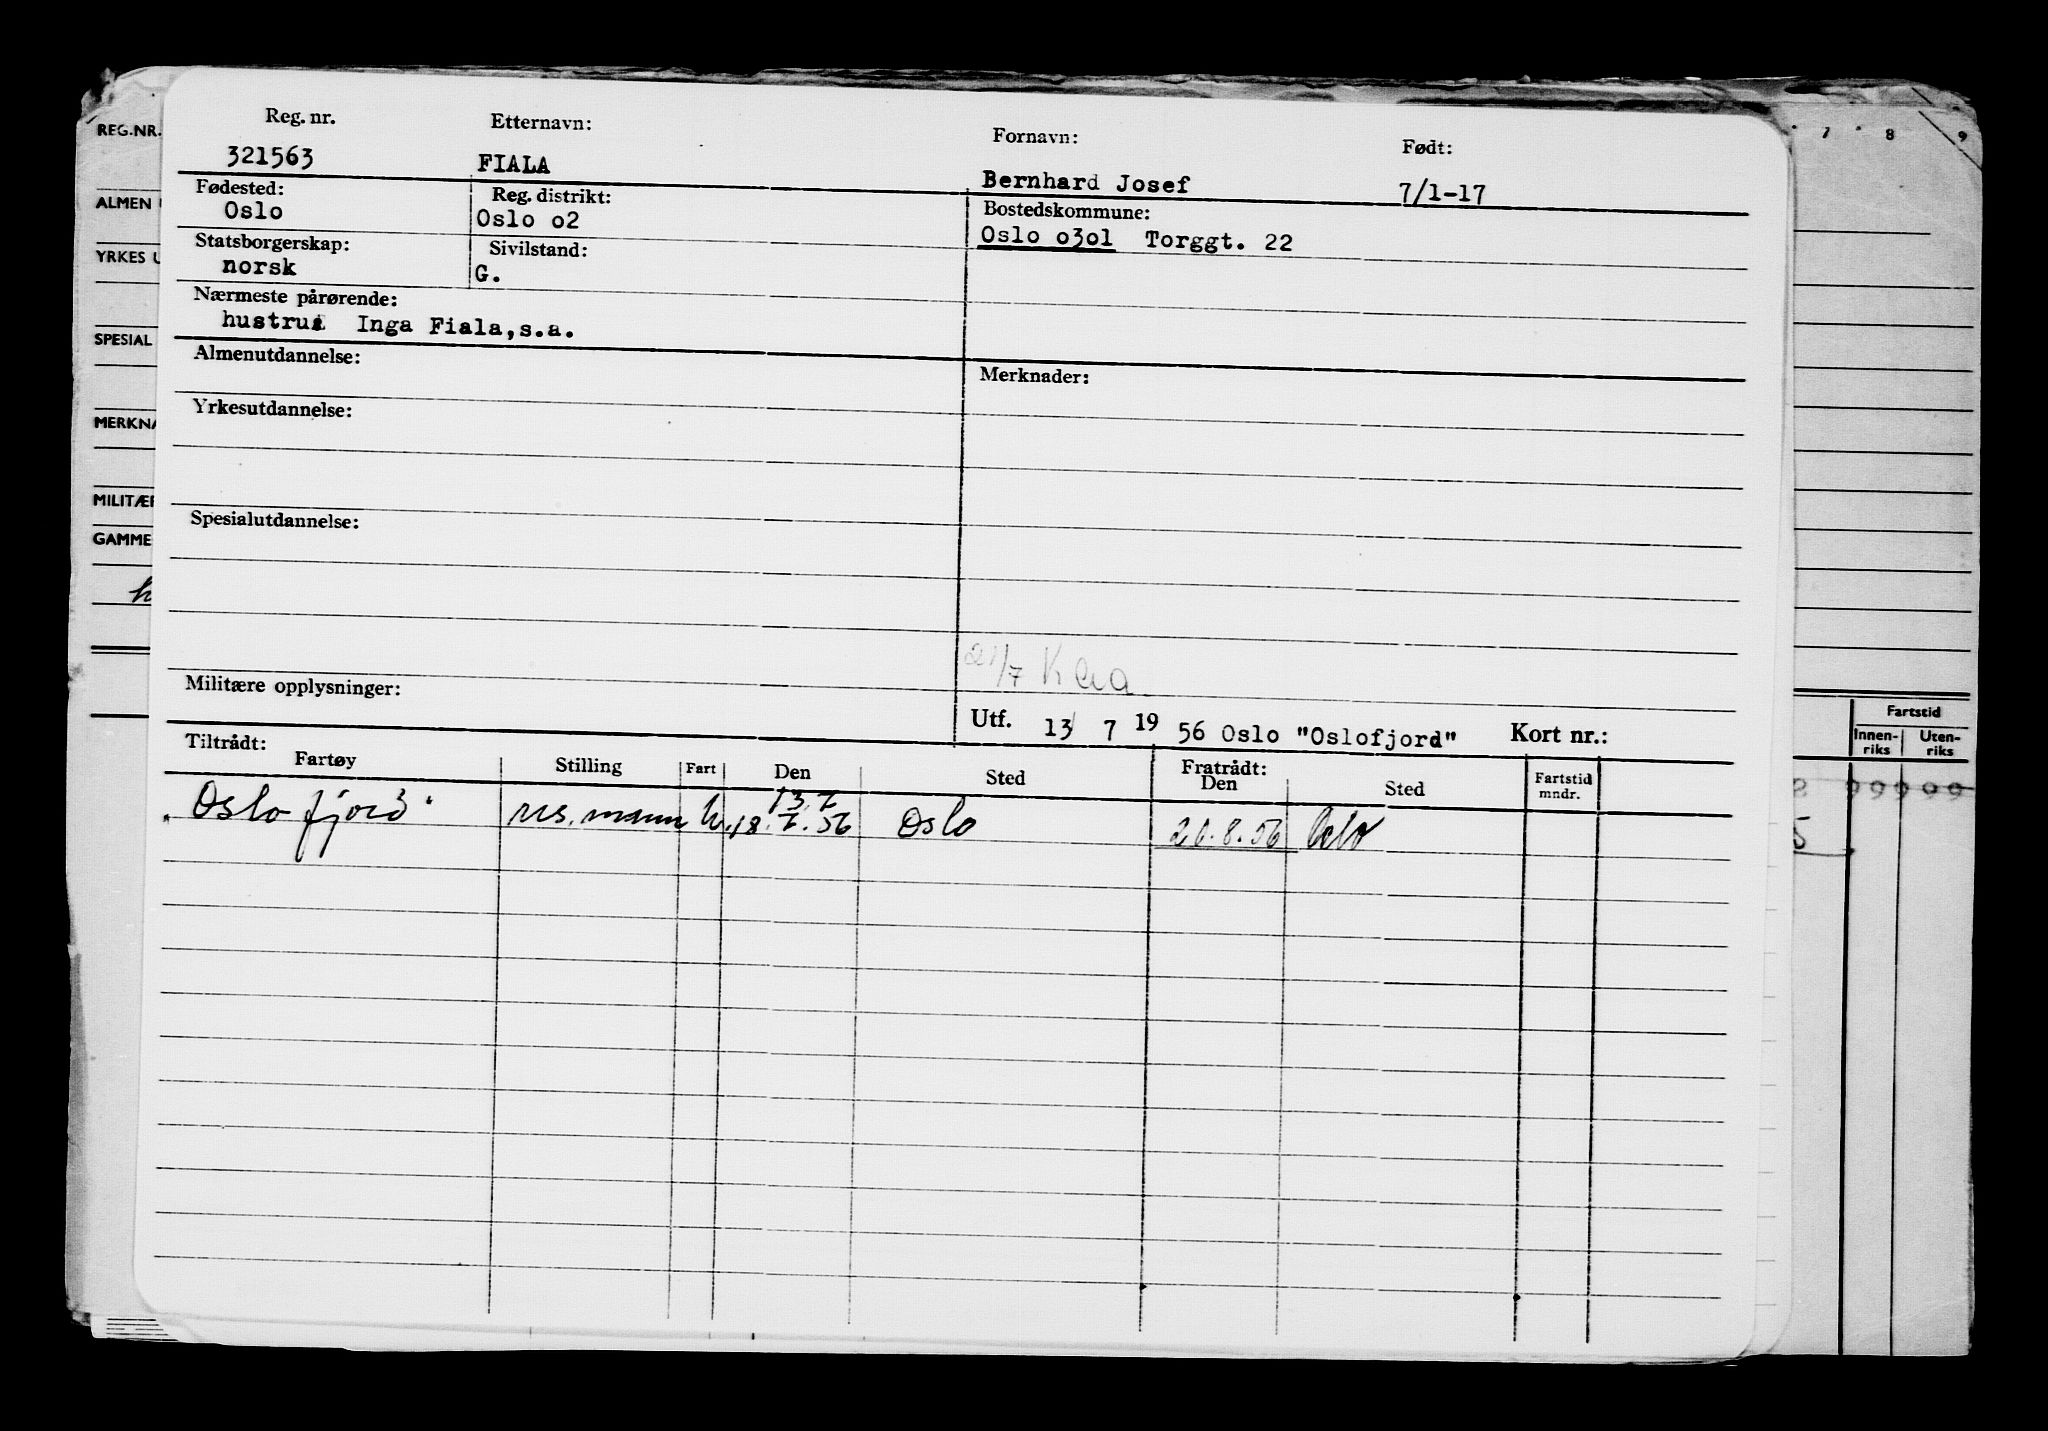 REG.NR.
ALMEN
YRKES
SPESIAL
MERKNA
MILITÆR
GAMME
7 8 9
Fartstid
Innen-
riks
Uten-
riks
Reg. nr. Etternavn: Fornavn: Født:
321563 FIALA Bernhard Josef 7/1-17
Fødested: Reg. distrikt: Bostedskommune:
Oslo Oslo o2 Oslo o3o1 Torggt. 22
Statsborgerskap: Sivilstand:
norsk G.
Nærmeste pårørende:
hustru: Inga Fiala,s.a.
Almenutdannelse: Merknader:
Yrkesutdannelse:
Spesialutdannelse:
21/7
Militære opplysninger:
Utf. 13 7 19 56 Oslo "Oslofjord" Kort nr.:
Tiltrådt: Fratrådt:
Fartøy Stilling Fart Den Sted Den Sted Fartstid
mndr.
13.7
"Oslofjord" mann 18.7.56 Oslo 8.56 Oslo